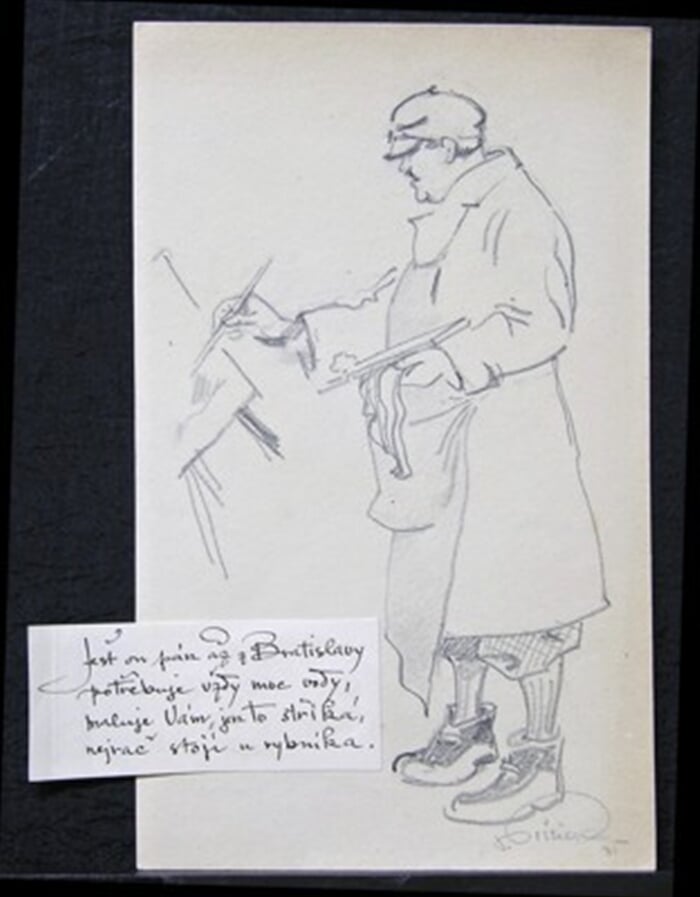 Ješť on pán až z Bratislavy
potřebuje vždy moc vody,
maluje Vám, jen to stříká,
nejrač stojí u rybníka.